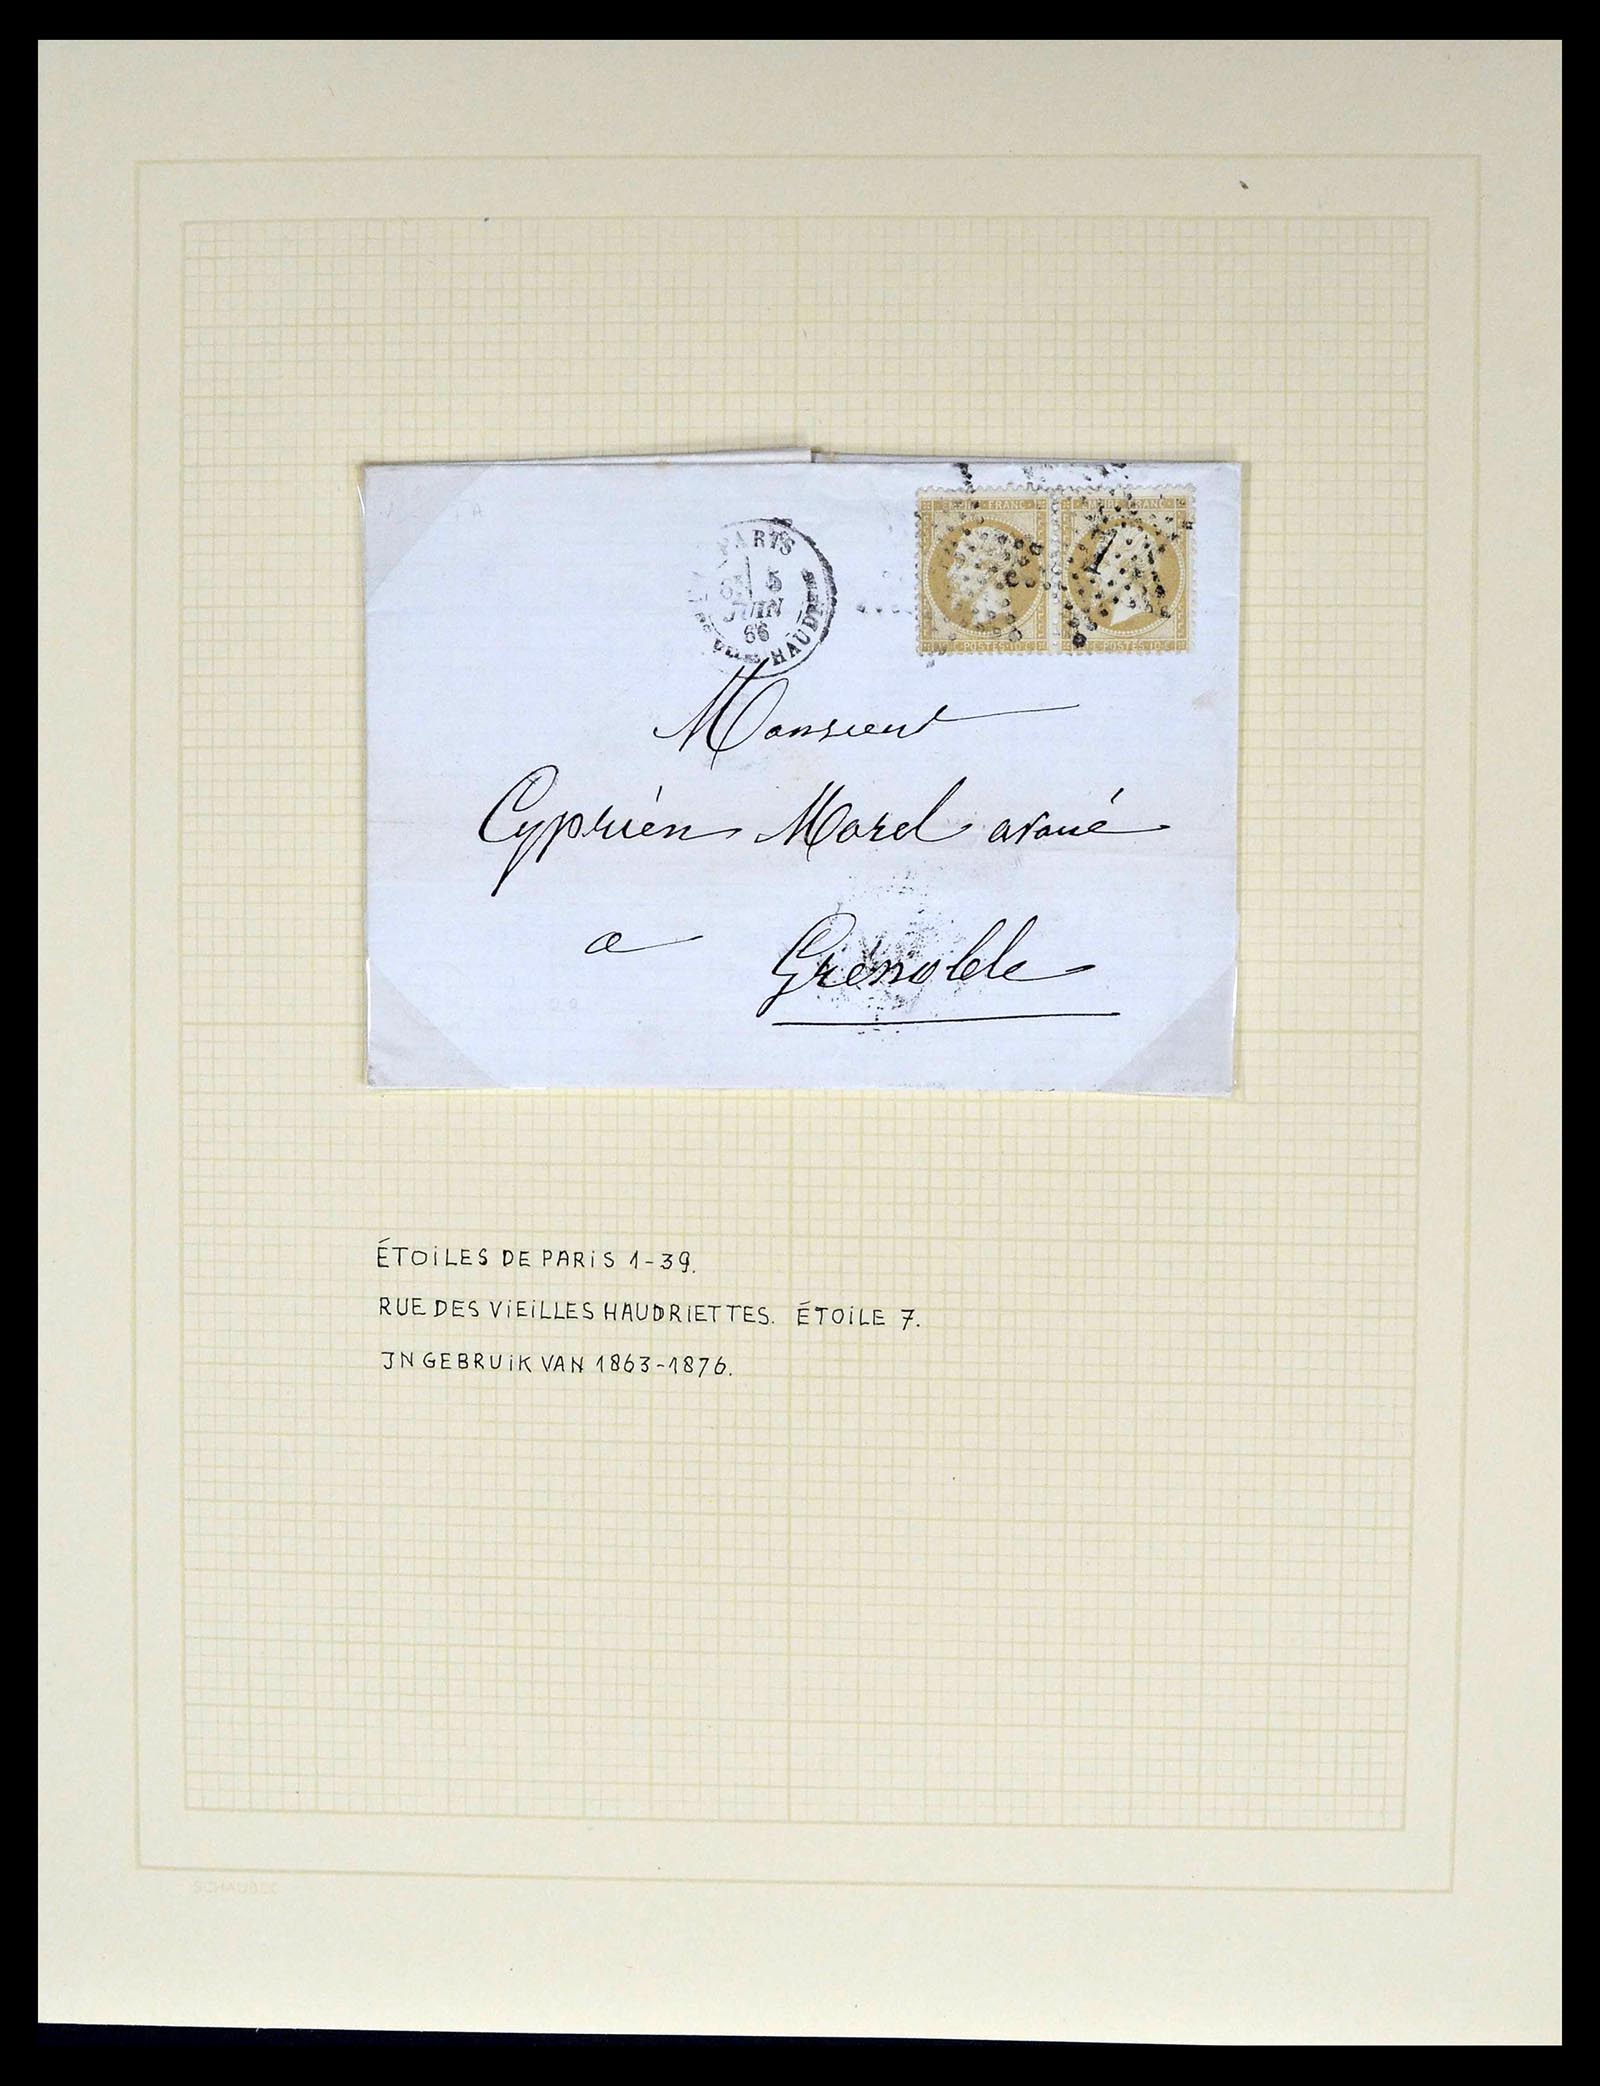 PARIS
5
JUIN
66
HAUDR
EMPIRE FRANC
EMPIRE FRANC
7
10 C POSTES 10 C
10 C POSTES 10 C
Monsieur
Cyprién Morel avoué
a Grénoble
ÉTOILES DE PARIS 1-39.
RUE DES VIEILLES HAUDRIETTES. ÉTOILE 7.
IN GEBRUIK VAN 1863-1876.
SCHAUBEK